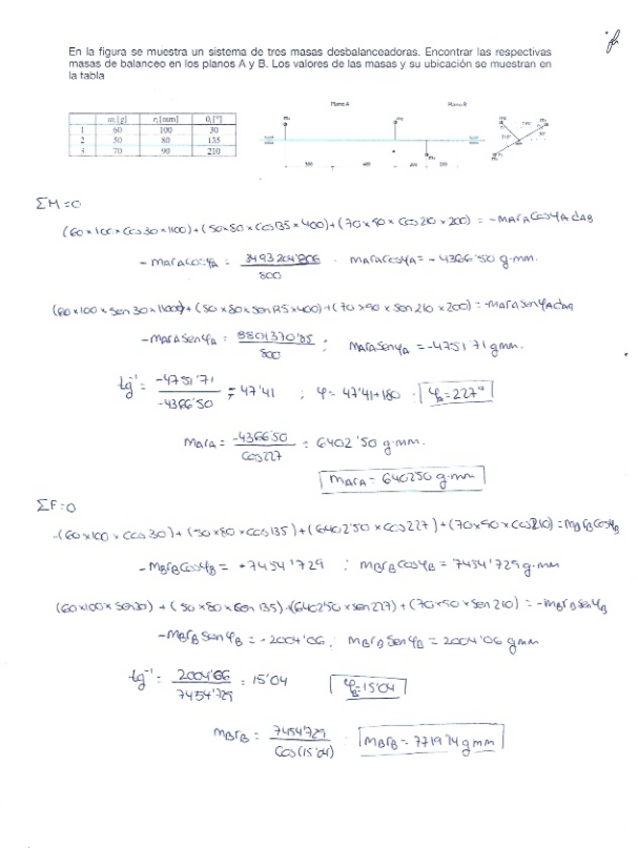 En la figura se muestra un sistema de tres masas desbalanceadoras. Encontrar las respectivas
masas de balanceo en los planos A y B. Los valores de las masas y su ubicación se muestran en
la tabla
Plano A Plano B
mᵢ[g] rᵢ[mm] θᵢ[°]
1 60 100 30
2 50 80 135
3 70 90 210
300 400 200 200
ΣM=0
(60×100×cos30×1100)+(50×80×cos135×400)+(70×90×cos210×200) = -mArAcosφA dAB
-mArAcosφA = 3493204'806 / 800 . mArAcosφA = -4366'50 g·mm.
(60×100×sen30×1100)+(50×80×sen135×400)+(70×90×sen210×200) = -mArAsenφA dAB
-mArAsenφA = 3801370'85 / 800 ; mArAsenφA = -4751'71 gmm.
tg⁻¹ = -4751'71 / -4366'50 = 47'41 ; φ = 47'41+180 . φA=227°
mArA = -4366'50 / cos227 = 6402'50 g·mm.
mArA = 6402'50 g·mm
ΣF=0
-(60×100×cos30)+(50×80×cos135)+(6402'50×cos227)+(70×90×cos210) = mBrBcosφB
-mBrBcosφB = -7454'729 ; mBrBcosφB = 7454'729 g·mm
(60×100×sen30)+(50×80×sen135)+(6402'50×sen227)+(70×90×sen210) = -mBrBsenφB
-mBrBsenφB = -2004'06 ; mBrBsenφB = 2004'06 gmm
tg⁻¹ = 2004'06 / 7454'729 = 15'04 φB=15'04
mBrB = 7454'729 / cos(15'04) . mBrB = 7719'74 gmm